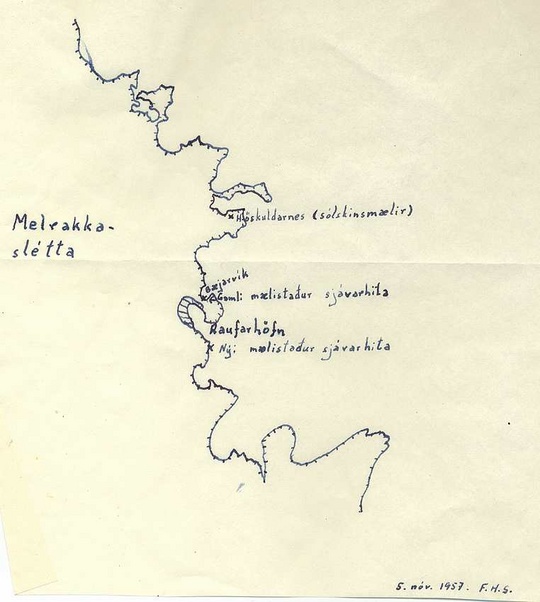 Melrakka-
slétta
Höskuldarnes (sólskinsmælir)
Bæjarvík
Gamli mælistaður sjávarhita
Raufarhöfn
Nýi mælistaður sjávarhita
5. nóv. 1957. F.H.S.